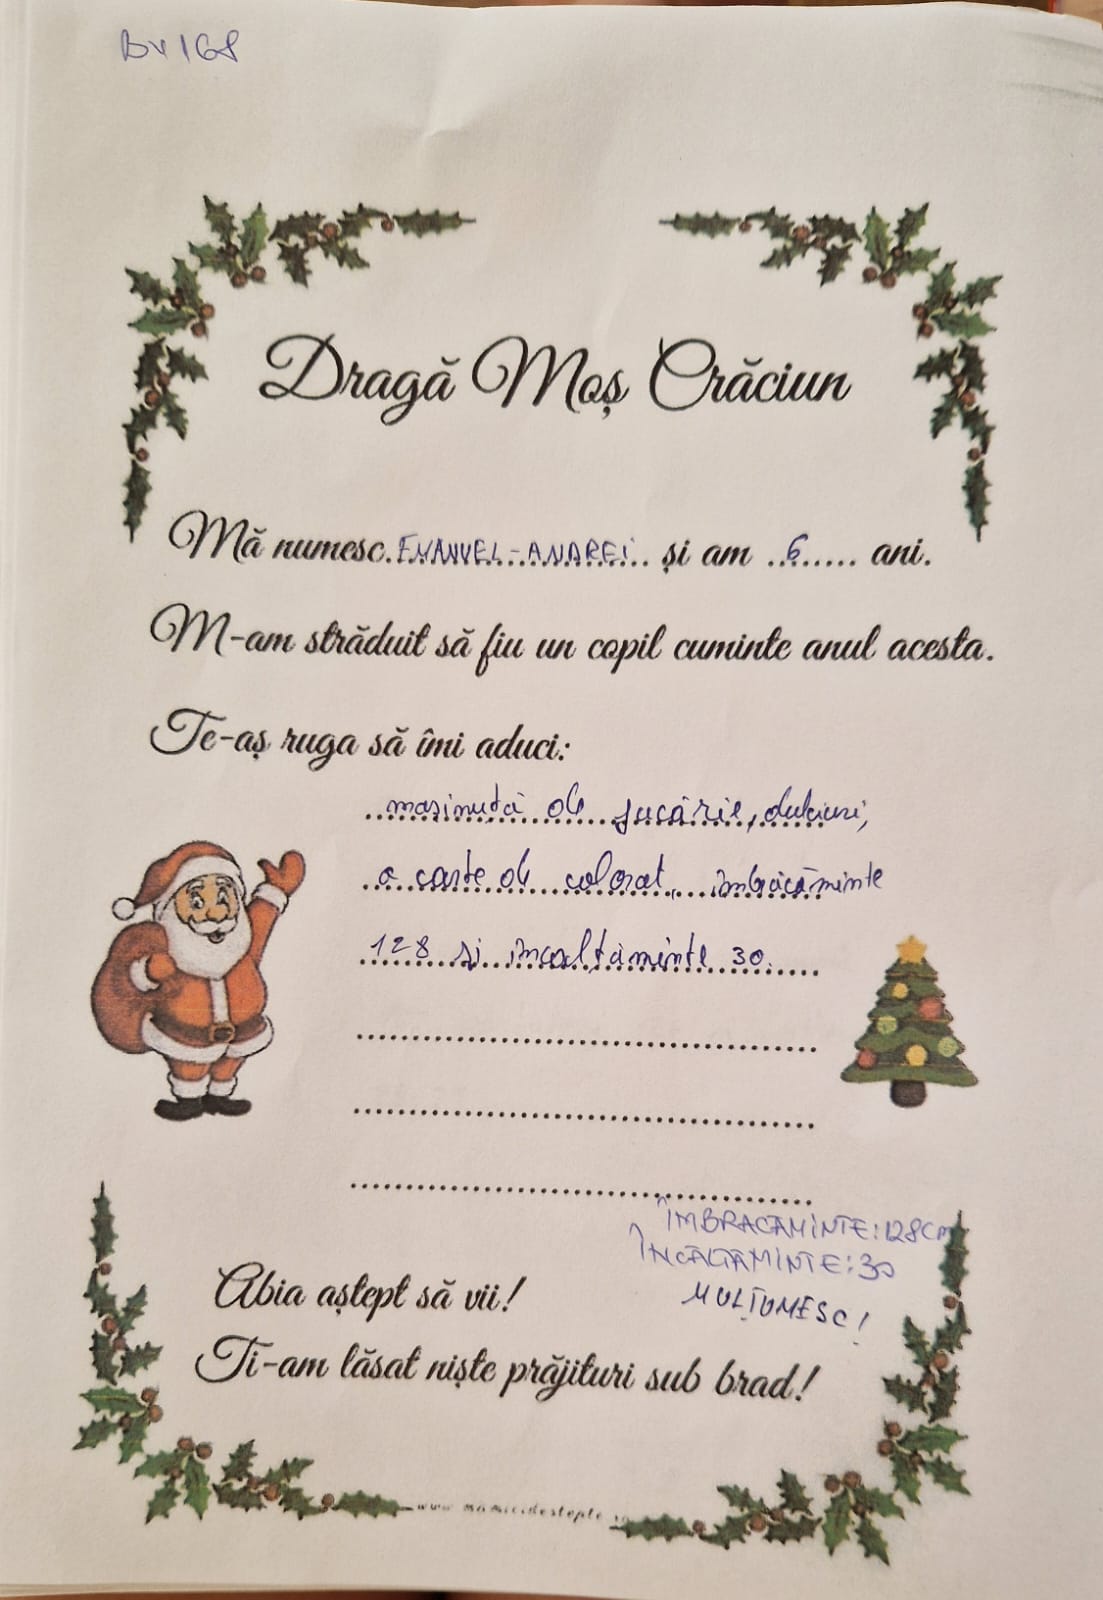 BV 168
Dragă Moș Crăciun
Mă numesc EMANUEL-ANDREI și am 6 ani.
M-am străduit să fiu un copil cuminte anul acesta.
Te-aș ruga să îmi aduci:
mașinuță de jucărie, dulciuri,
o carte de colorat, îmbrăcăminte
128 și încălțăminte 30.
ÎMBRĂCĂMINTE: 128 cm
ÎNCĂLȚĂMINTE: 30
MULȚUMESC!
Abia aștept să vii!
Ti-am lăsat niște prăjituri sub brad!
www.mamicidestepte.ro